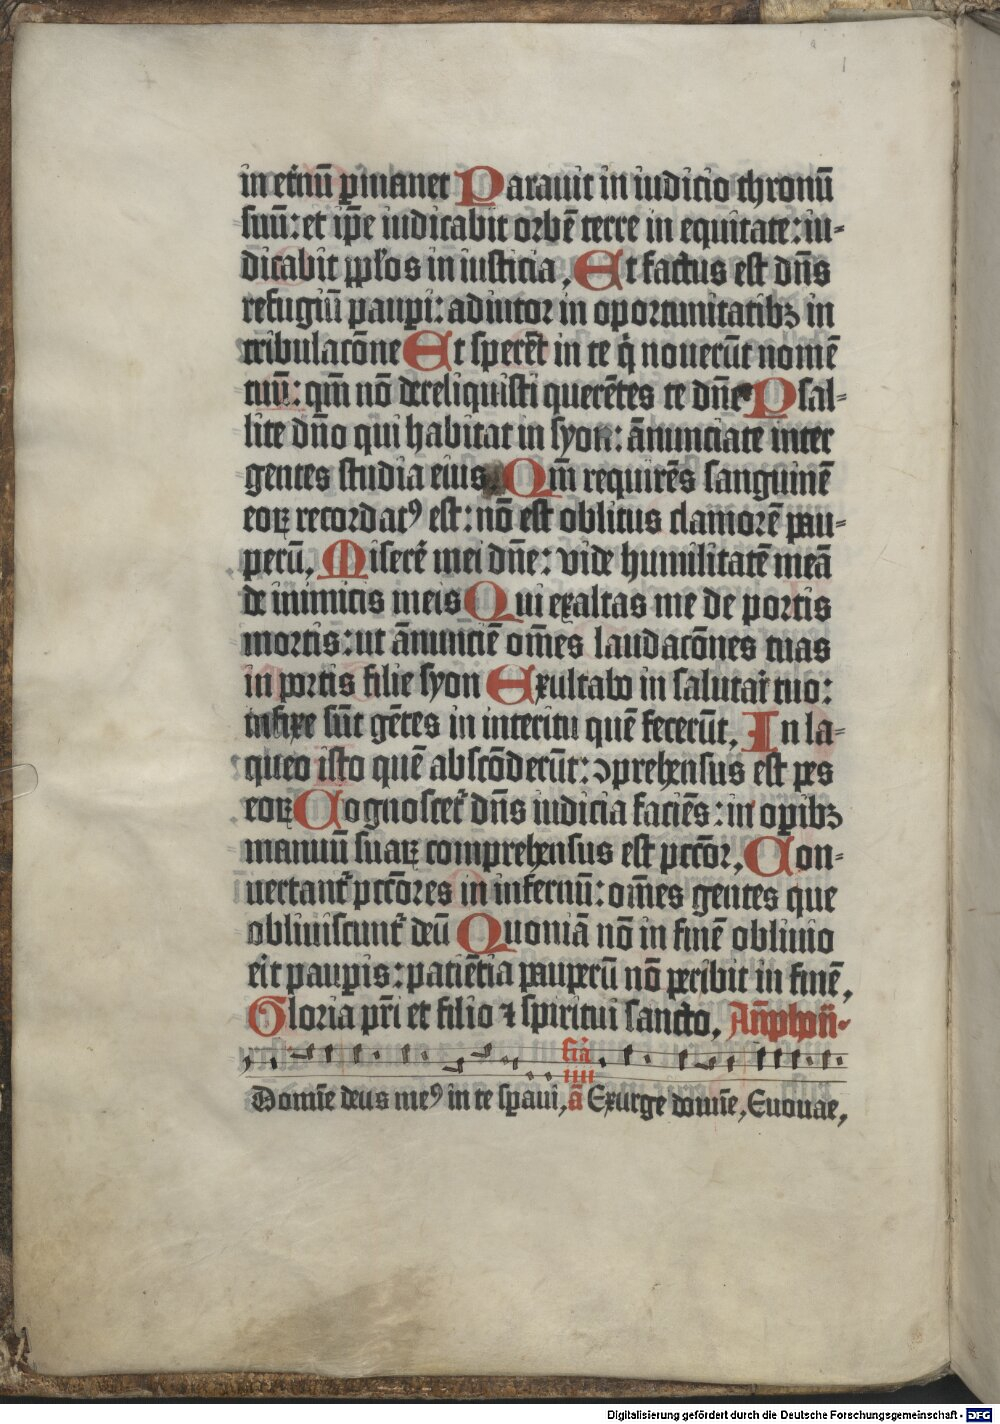 in et̾nū ꝑmanet Parauit in iudicio thronū
suū: et ip̄e iudicabit orbē terre in equitate: iu-
dicabit ppl̓os in iusticia, Et factus est dn̄s
refugiū pauꝑi: adiutor in oportunitatibꝫ in
tribulacōne Et sperēt in te q̇ nouerūt nomē
tuū: qm̄ nō dereliquisti querētes te dn̄e Psal-
lite dn̄o qui habitat in syon: ānunciate inter
gentes studia eius. Qm̄ requirēs sanguinē
eoꝝ recordatꝰ est: nō est oblitus clamorē pau-
perū, Miserē mei dn̄e: vide humilitatē meā
de inimicis meis Qui exaltas me de portis
mortis: ut ānunciē om̄es laudacōnes tuas
in portis filie syon Exultabo in salutari tuo:
infixe sūt gētes in interitu quē fecerūt, In la-
queo isto quē abscōderūt: ɔprehensus est pes
eoꝝ Cognoscet̾ dn̄s iudicia faciēs: in oꝑibꝫ
manuū suaꝝ comprehensus est pccōr, Con-
uertant̾ pccōres in infernū: om̄es gentes que
obliuiscunt̾ deū Quoniā nō in finē obliuio
erit pauꝑis: paciētia pauperū nō peribit in finē,
Gloria pr̄i et filio ⁊ spiritui sancto, An̄phon̄-
fīā
iiii
Domīe deus meꝰ in te sꝑaui, ā Exurge domīe, Euouae,
Digitalisierung gefördert durch die Deutsche Forschungsgemeinschaft - DFG